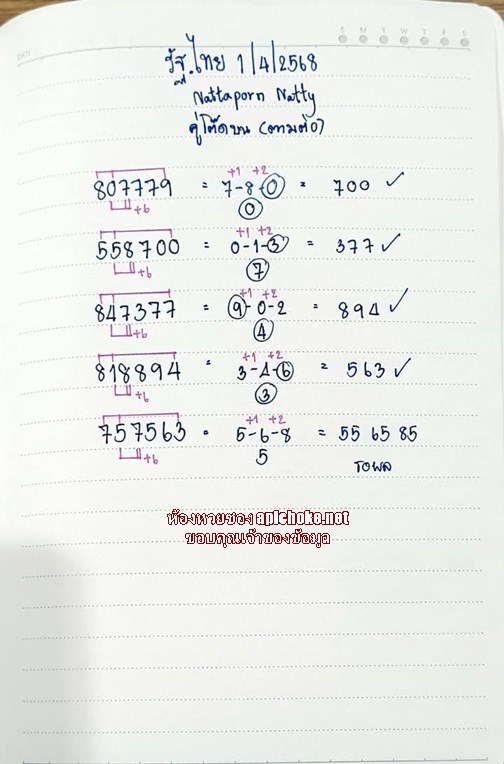 S M T W T F S
รัฐ.ไทย 1/4/2568
Nattaporn Natty
คู่โต๊ดบน (ตามต่อ)
+1 +2
807779 = 7-8-0 = 700 ✓
+6 0
+1 +2
558700 = 0-1-3 = 377 ✓
+6 7
+1 +2
847377 = 9-0-2 = 894 ✓
+6 4
+1 +2
818894 = 3-4-6 = 563 ✓
+6 3
+1 +2
757563 = 5-6-8 = 55 65 85
+6 5
รอผล
ห้องหวยซอง aplchoke.net
ขอบคุณเจ้าของข้อมูล